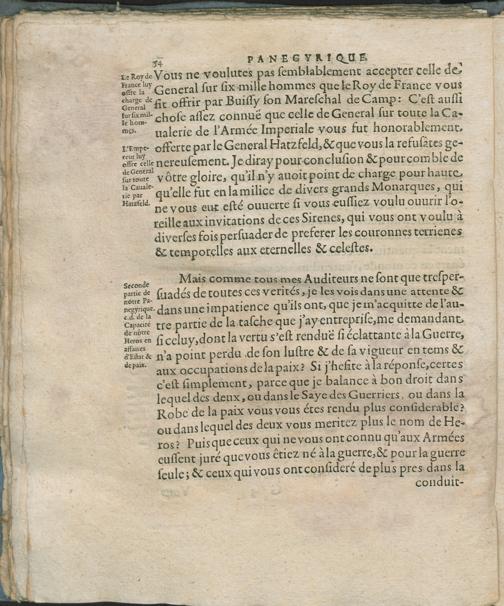 34
PANEGYRIQUE
Le Roy de
France luy
offre la
charge de
General
sur six mil-
le hom-
mes.
L'Empe-
reur luy
offre celle
de General
sur toute
la Cauale-
rie par
Hatzfeld.
Vous ne voulutes pas semblablement accepter celle de
General sur six mille hommes que le Roy de France vous
fit offrir par Buissy son Mareschal de Camp: C'est aussi
chose assez connuë que celle de General sur toute la Ca-
ualerie de l'Armée Imperiale vous fut honorablement
offerte par le General Hatzfeld, & que vous la refusâtes ge-
nereusement. Je diray pour conclusion & pour comble de
vôtre gloire, qu'il n'y auoit point de charge pour haute
qu'elle fut en la milice de divers grands Monarques, qui
ne vous eut esté ouuerte si vous eussiez voulu ouurir l'o-
reille aux invitations de ces Sirenes, qui vous ont voulu à
diverses fois persuader de preferer les couronnes terrienes
& temporelles aux eternelles & celestes.
Seconde
partie de
nôtre Pa-
negyrique,
c.d. de la
Capacité
de nôtre
Heros en
affaires
d'Estat &
de paix.
Mais comme tous mes Auditeurs ne sont que tresper-
suadés de toutes ces verités, je les vois dans une attente &
dans une impatience qu'ils ont, que je m'acquitte de l'au-
tre partie de la tasche que j'ay entreprise, me demandant,
si celuy, dont la vertu s'est renduë si éclattante à la Guerre,
n'a point perdu de son lustre & de sa vigueur en tems &
aux occupations de la paix? Si j'hesite à la réponse, certes
c'est simplement, parce que je balance à bon droit dans
lequel des deux, ou dans le Saye des Guerriers, ou dans la
Robe de la paix vous vous étes rendu plus considerable?
ou dans lequel des deux vous meritez plus le nom de He-
ros? Puis que ceux qui ne vous ont connu qu'aux Armées
eussent juré que vous êtiez né à la guerre, & pour la guerre
seule; & ceux qui vous ont consideré de plus pres dans la
conduit-